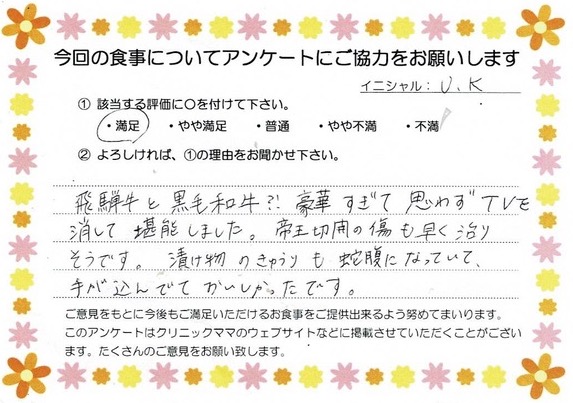 今回の食事についてアンケートにご協力をお願いします
イニシャル：U.K
① 該当する評価に○を付けて下さい。
・満足 ・やや満足 ・普通 ・やや不満 ・不満
② よろしければ、①の理由をお聞かせ下さい。
飛騨牛と黒毛和牛?! 豪華すぎて思わずTVを
消して堪能しました。帝王切開の傷も早く治り
そうです。漬け物のきゅうりも蛇腹になっていて、
手が込んでてかいしかったです。
ご意見をもとに今後もご満足いただけるお食事をご提供出来るよう努めてまいります。
このアンケートはクリニックママのウェブサイトなどに掲載させていただくことがござい
ます。たくさんのご意見をお願い致します。